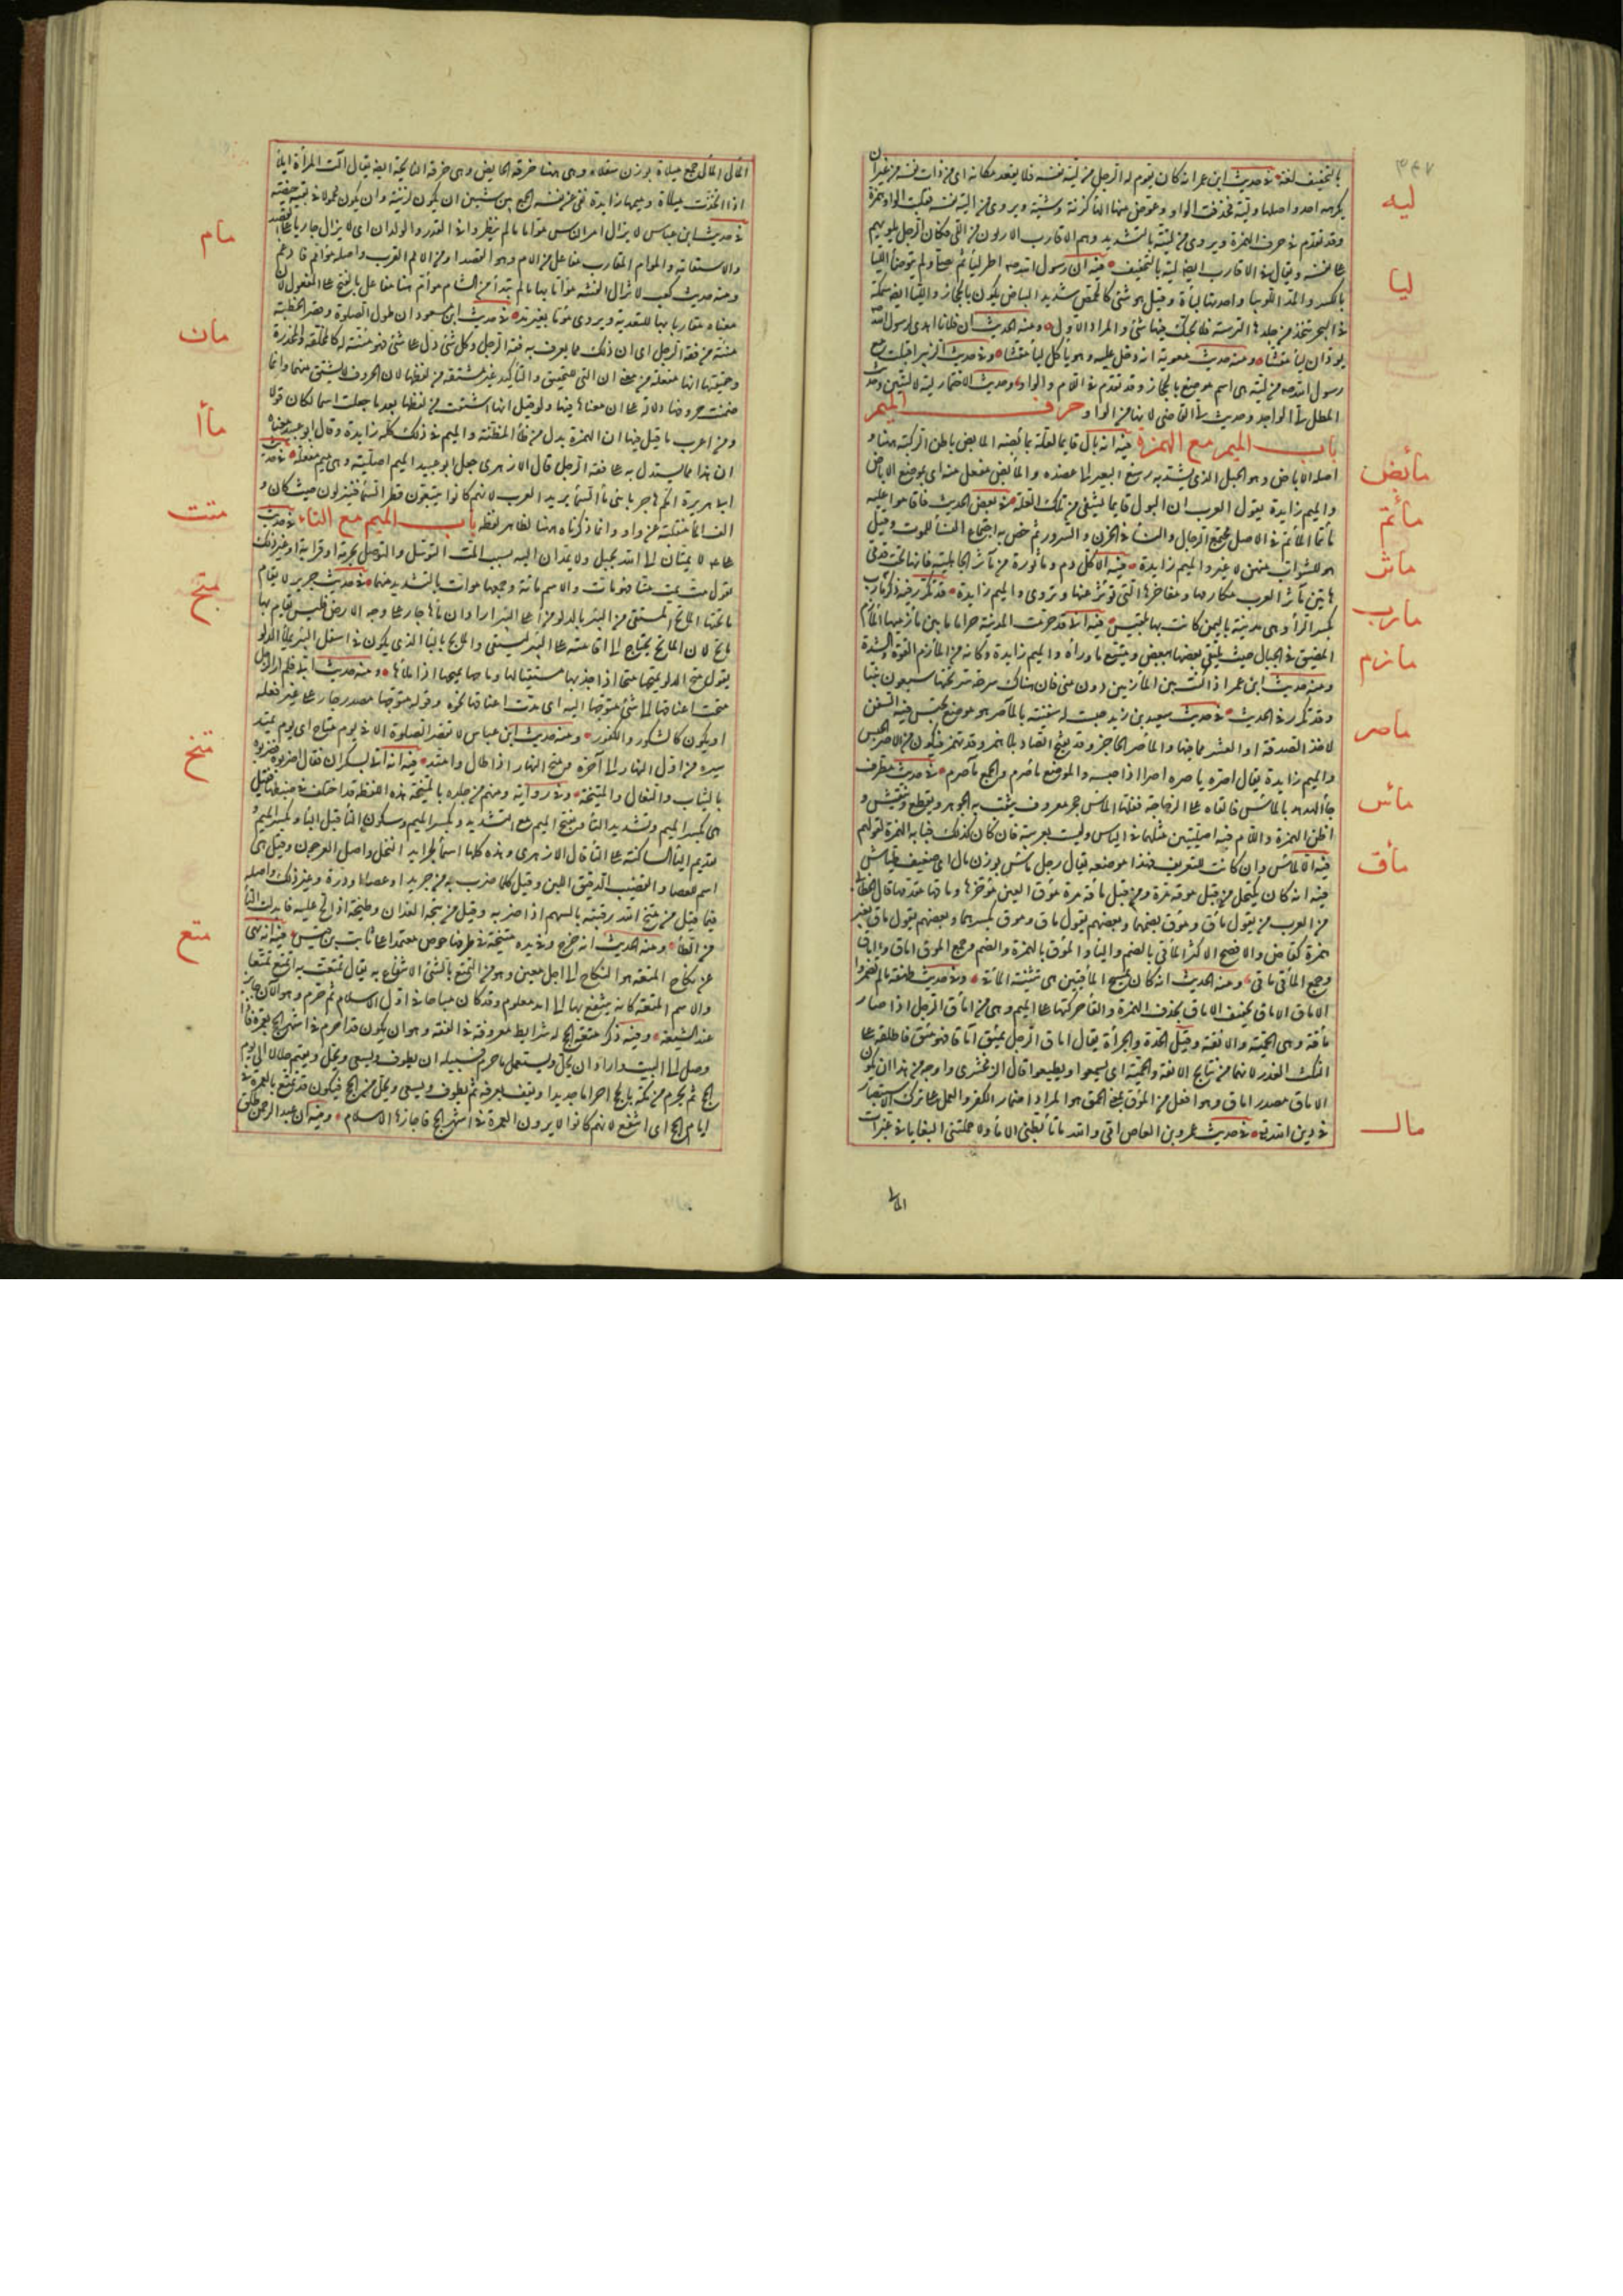 ٣٤٧
بالتخفيف لغة في حديث ابن عمر انه كان يقوم له الرجل من لية نفسه فلا يقعد مكانه اى من ذات نفسه من غير ان
ليه
يكرهه احد واصلها ولية فحذفت الواو وعوض منها التاء كزنة وشية ويروى من الية نفسه فقلبت الواو همزة
وقد تقدم في حرف الهمزة ويروى من ليته بالتشديد وهم الاقارب الادنون من اللى فكان الرجل يلويهم
على نفسه ويقال في الاقارب ايضا لية بالتخفيف فيه ان رسول الله صم اكل لياء ثم صلى ولم يتوضأ اللياء
ليا
بالكسر والمد اللوبيا واحدتها لياءة وقيل هو شئ كالحمص شديد البياض يكون بالحجاز واللياء ايضا سمكة
في البحر تتخذ من جلدها الترسة فلا يحيك فيها شئ والمراد الاول ومنه الحديث ان فلانا اهدى لرسول الله
بودان لياء مقشا ومنه حديث معوية انه دخل عليه وهو يأكل لياء مقشا وفي حديث الزبير اقبلت مع
رسول الله صم من لية هى اسم موضع بالحجاز وقد تقدم في اللام والواو وحديث الاختمار لية لا ليتين وحديث
المطل لى الواجد وحديث لى القاضى لانها من الواو حرف الميم
باب الميم مع الهمزة فيه انه بال قايما لعلة بمأبضيه المأبض باطن الركبة هنا و
مأبض
اصله الاباض وهو الحبل الذى يشد به رسغ البعير الى عضده والمأبض مفعل منه اى موضع الاباض
والميم زايدة يقول العرب ان البول قايما يشفى من تلك العلة في بعض الحديث فاقاموا عليه
مأتم
مأتما المأتم في الاصل مجتمع الرجال والنساء في الحزن والسرور ثم خص به اجتماع النساء للموت وقيل
هو للشواب منهن لا غير والميم زايدة فيه الا كل دم ومأثورة من مآثر الجاهلية فانها تحت قدمى
مأثر
هاتين مآثر العرب مكارمها ومفاخرها التى تؤثر عنها وتروى والميم زايدة قد تكرر فيه ذكر مأرب
مأرب
بكسر الراء وهى مدينة باليمن كانت بها بلقيس فيه انى قد حرمت المدينة حراما ما بين مأزميها المأزم
المضيق في الجبال حيث يلتقى بعضها ببعض ويتسع ما وراءه والميم زايدة وكانه من المأزم القوة والشدة
مأزم
ومنه حديث ابن عمر اذا كنت بين المأزمين دون منى فان هناك سرحة سر تحتها سبعون نبيا
وقد تكرر في الحديث في حديث سعيد بن زيد حبست له سفينة بالمآصر هو موضع تحبس فيه السفن
ماصر
لاخذ الصدقة او العشر مما فيها والمأصر الحاجز وقد يفتح الصاد بلا همز وقد تهمز فيكون من الاصر الحبس
والميم زايدة يقال اصره ياصره اصرا اذا حبسه والموضع مأصر والجمع مآصر في حديث مطرف
جاء الهدهد بالماس فالقاه على الزجاجة ففلقها الماس حجر معروف يثقب به الجوهر ويقطع وينقش و
مأس
اظن الهمزة واللام فيه اصليتين مثلهما في الياس وليست بعربية فان كان كذلك فبابه الهمزة لقولهم
فيه الالماس وان كانت للتعريف فهذا موضعه يقال رجل ماس بوزن مال اى خفيف طياش
مأق
فيه انه كان يكتحل من قبل موقه مرة ومن قبل مأقه مرة موق العين مؤخرها ومأقها مقدمها قال الخطابى
من العرب من يقول مأق وموق بضمهما وبعضهم يقول ماق وموق بكسرهما وبعضهم يقول ماق بغير
همزة كقاض والافصح الاكثر المأقى بالضم والياء والموق بالهمزة والضم وجمع الموق اماق وآماق
وجمع المأقى مآقى ومنه الحديث انه كان يمسح المأقيين هى تثنية المأقى وفي حديث طهفة ما لم تضمروا
الاماق الاماق تخفيف الامآق بحذف الهمزة والقاء حركتها على الميم وهى من امأق الرجل اذا صار
مأقة وهى الحمية والانفة وقيل الحدة والجرأة يقال امأق الرجل يمئق امآقا فهو مئق فاطلقه على
النكث والغدر لانهما من نتايج الانفة والحمية اى يسمعوا ويطيعوا قال الزمخشرى واوجه من هذا ان يكون
الاماق مصدر اماق وهو افعل من الموق بمعنى الحمق هو المراد اضمار الكفر والعمل على ترك الاستبصار
في دين الله في حديث عمرو بن العاص انى والله ما تأبطتنى الاماء ولا حملتنى البغايا في غبرات
مال
المآلى
المآلى المآلى جمع ميلاة بوزن سعلاة وهى ههنا خرقة الحايض وهى خرقة النايحة ايضا يقال آلت المرأة ايلاء
اذا اتخذت ميلاة وميمها زايدة نفى عن نفسه الجمع بين سبتين ان يكون لزنية وان يكون محمولا في بقية حيضة
مام
في حديث ابن عباس لا يزال امر الناس مؤاما ما لم ينظروا في القدر والولدان اى لا يزال جاريا على القصد
والاستقامة والموام المقارب مفاعل من الام وهو القصد او من الامم القرب واصله مؤامم فادغم
ومنه حديث كعب لا تزال الفتنة مؤاما بها ما لم تبدأ من الشام مؤام هنا مفاعل بالفتح على المفعول لان
معناه مقاربا بها للتعدية ويروى مؤما بغير مد في حديث ابن مسعود ان طول الصلوة وقصر الخطبة
مأن
مئنة من فقه الرجل اى ان ذلك مما يعرف به فقه الرجل وكل شئ دل على شئ فهو مئنة له كالمخلقة والمجدرة
وحقيقتها انها مفعلة من معنى ان التى للتحقيق والتأكيد غير مشتقة من لفظها لان الحروف لا يشتق منها وانما
ضمنت حروفها دلالة على ان معناها فيها ولو قيل انها اشتقت من لفظها بعد ما جعلت اسما لكان قولا
ومن اغرب ما قيل فيها ان الهمزة بدل من ظاء المظنة والميم في ذلك كله زايدة وقال ابو عبيد معناه
مأا
ان هذا مما يستدل به على فقه الرجل قال الازهرى جعل ابو عبيد الميم اصلية وهى ميم مفعلة في حديث
ابى هريرة امكم هاجر يا بنى ماء السماء يريد العرب لانهم كانوا يتبعون قطر السماء فينزلون حيث كان و
الف الماء منقلبة عن واو وانما ذكرناه هنا لظاهر لفظه باب الميم مع التاء في حديث
متت
على لا يمتان الى الله بحبل ولا يمدان اليه بسبب المت التوسل والتوصل بحرمة او قرابة او غير ذلك
تقول مت يمت متا فهو مات والاسم ماتة وجمعها موات بالتشديد فيهما في حديث جرير لا يقام
متح
ماتحها الماتح المستقى من البئر بالدلو من اعلى البئر اراد ان ماءها جار على وجه الارض فليس يقام بها
ماتح لان الماتح يحتاج الى اقامته على البئر ليستقى والمايح بالياء الذى يكون في اسفل البئر يملأ الدلو
يقول متح الدلو يمتحها متحا اذا جذبها مستقيا لها وماحها يميحها اذا ملأها ومنه حديث ابى فلم ار الرجل
متحت اعناقها الى شئ متوحها اليه اى مدت اعناقها نحوه وقوله متوحها مصدر جار على غير فعله
او يكون كالشكور والكفور ومنه حديث ابن عباس لا تقصر الصلوة الا في يوم متاح اى يوم يمتد
سيره من اول النهار الى آخره ومتح النهار اذا طال وامتد فيه انه اتى بسكران فقال اضربوه فضربوه
متخ
بالثياب والنعال والمتيخة وفي رواية ومنهم من جلده بالمتيخة هذه اللفظة قد اختلف في ضبطها فقيل
هى بكسر الميم وتشديد التاء وبفتح الميم مع التشديد وبكسر الميم وسكون التاء قبل الياء وبكسر الميم و
تقديم الياء الساكنة على التاء قال الازهرى وهذه كلها اسماء لجرايد النخل واصل العرجون وقيل هى
اسم للعصا والقضيب الدقيق اللين وقيل كلما ضرب به من جريد او عصا او درة وغير ذلك واصلها
فيما قيل من متخ الله رقبته بالسهم اذا ضربه وقيل من تيخه العذاب وطيخه اذا الح عليه فابدلت التاء
من الطاء ومنه الحديث انه خرج وفي يده متيخة في طرفها خوص معتمدا على ثابت بن قيس فيه انه نهى
متع
عن نكاح المتعة هو النكاح الى اجل معين وهو من التمتع بالشئ الانتفاع به يقال تمتعت به اتمتع تمتعا
والاسم المتعة كانه ينتفع بها الى امد معلوم وقد كان مباحا في اول الاسلام ثم حرم وهو الآن جايز
عند الشيعة وفيه ذكر متعة الحج له شرايط معروفة في الفقه وهو ان يكون قد احرم في اشهر الحج بعمرة فاذا
وصل الى البيت واراد ان يحل ويستعمل ما حرم فسبيله ان يطوف ويسعى ويحل ويقيم حلالا الى يوم
الحج ثم يحرم من مكة بالحج احراما جديدا ويقف بعرفة ثم يطوف ويسعى ويحل من الحج فيكون قد تمتع بالعمرة في
ايام الحج اى انتفع لانهم كانوا لا يرون العمرة في اشهر الحج فاجازها الاسلام وفيه ان عبد الرحمن طلق